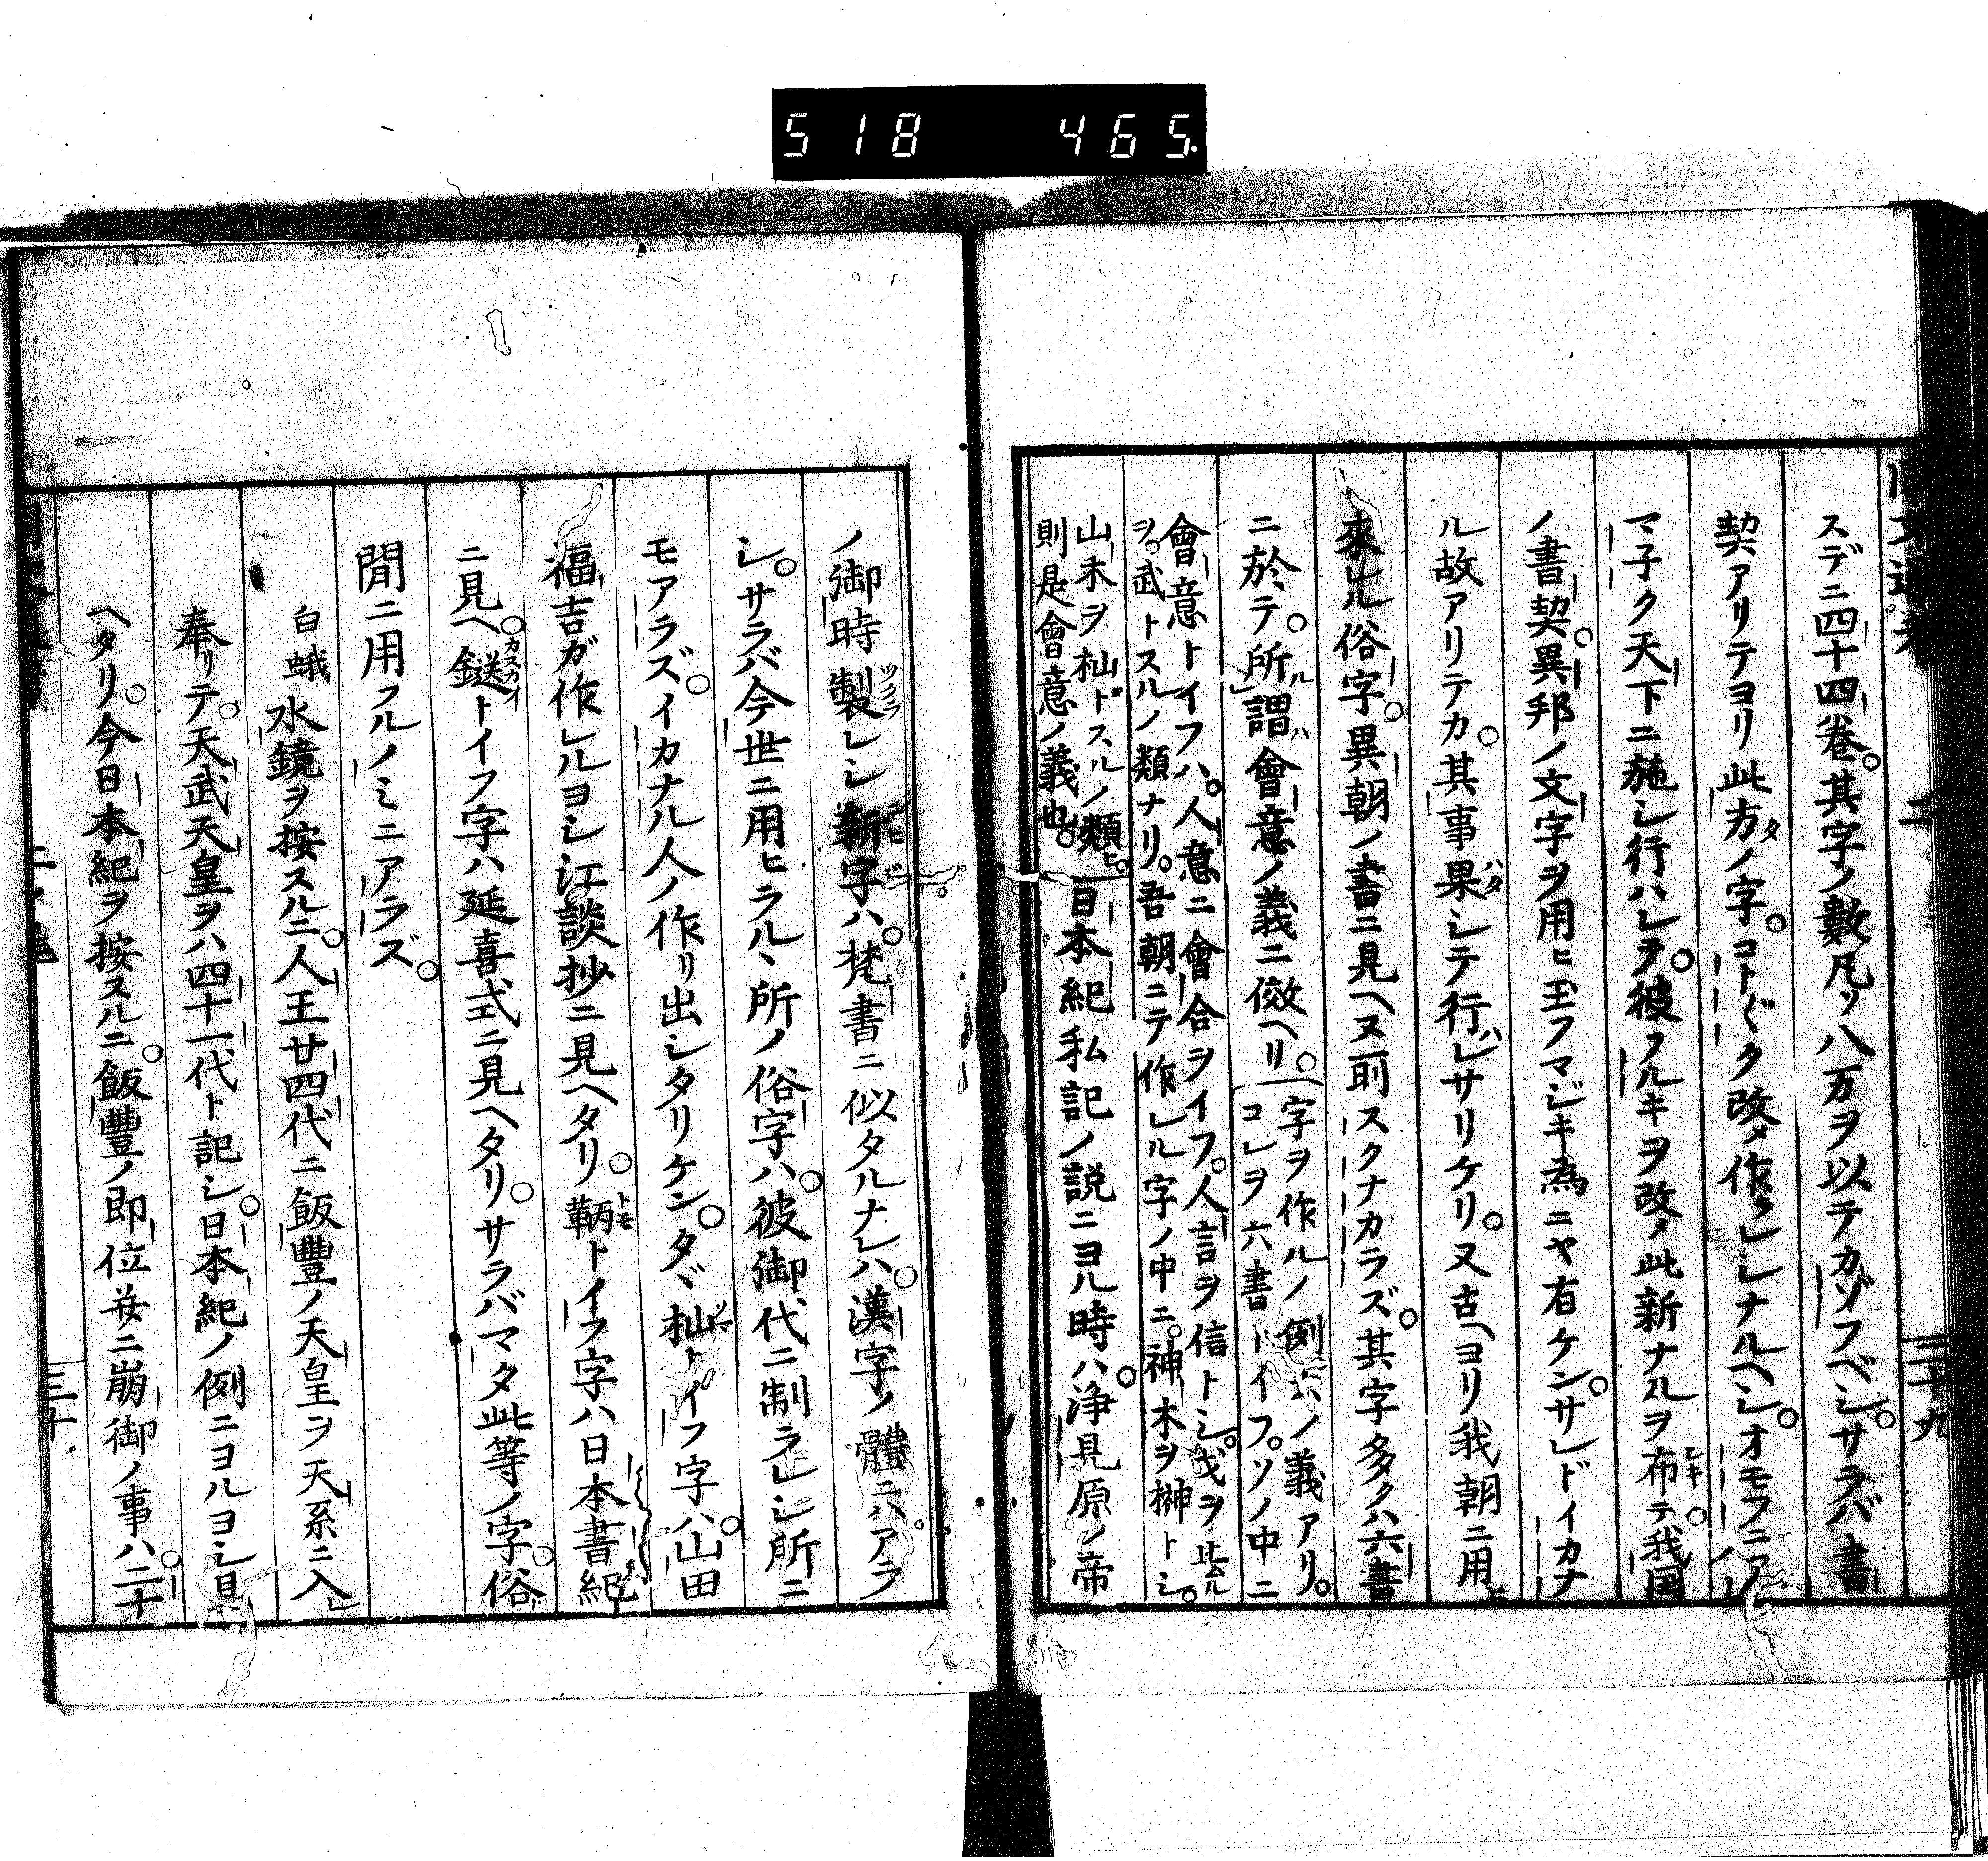 518 465.
二十九
スデニ四十四巻。其字ノ數凡ソ八万ヲ以テカゾフベシ。サラバ書
契アリテヨリ此方ノ字。コト〲ク改メ作ラレシナルヘシ。オモフニアレ
マ子ク天下ニ施シ行ハレテ。彼フルキヲ改メ此新ナルヲ布テ。我国
ノ書契。異邦ノ文字ヲ用ヒ玉フマジキ為ニヤ有ケン。サレドイカナ
ル故アリテカ。其事果シテ行レサリケリ。又古ヘヨリ我朝ニ用ヒ
來ル俗字。異朝ノ書ニ見ヘヌ所スクナカラズ。其字多クハ六書
ニ於テ。所謂會意ノ義ニ傚ヘリ。
字ヲ作ルノ例六ノ義アリ。
コレヲ六書トイフ。ソノ中ニ
會意トイフハ。人意ニ會合ヲイフ。人言ヲ信トシ。戈ヲ止ムル
ヲ。武トスルノ類ナリ。吾朝ニテ作レル字ノ中ニ。神木ヲ榊トシ。
山木ヲ杣トスルノ類ヒ。
則是會意ノ義也。
日本紀私記ノ説ニヨル時ハ。浄見原ノ帝
ノ御時製レシ新字ハ。梵書ニ似タルナレハ。漢字ノ體ニハアラ
シ。サラバ今世ニ用ヒラルヽ所ノ俗字ハ。彼御代ニ制ラレシ所ニ
モアラズ。イカナル人ノ作リ出シタリケン。タヾ杣トイフ字ハ。山田
福吉ガ作レルヨシ江談抄ニ見ヘタリ。鞆トイフ字ハ日本書紀
ニ見ヘ。鎹トイフ字ハ延喜式ニ見ヘタリ。サラバマタ此等ノ字。俗
間ニ用フルノミニアラズ。
白蛾水鏡ヲ按スルニ。人王廿四代ニ飯豐ノ天皇ヲ天系ニ入
奉リテ。天武天皇ヲハ四十一代ト記シ。日本紀ノ例ニヨルヨシ見
ヘタリ。今日本紀ヲ按スルニ。飯豐ノ即位并ニ崩御ノ事ハ。二十
三十